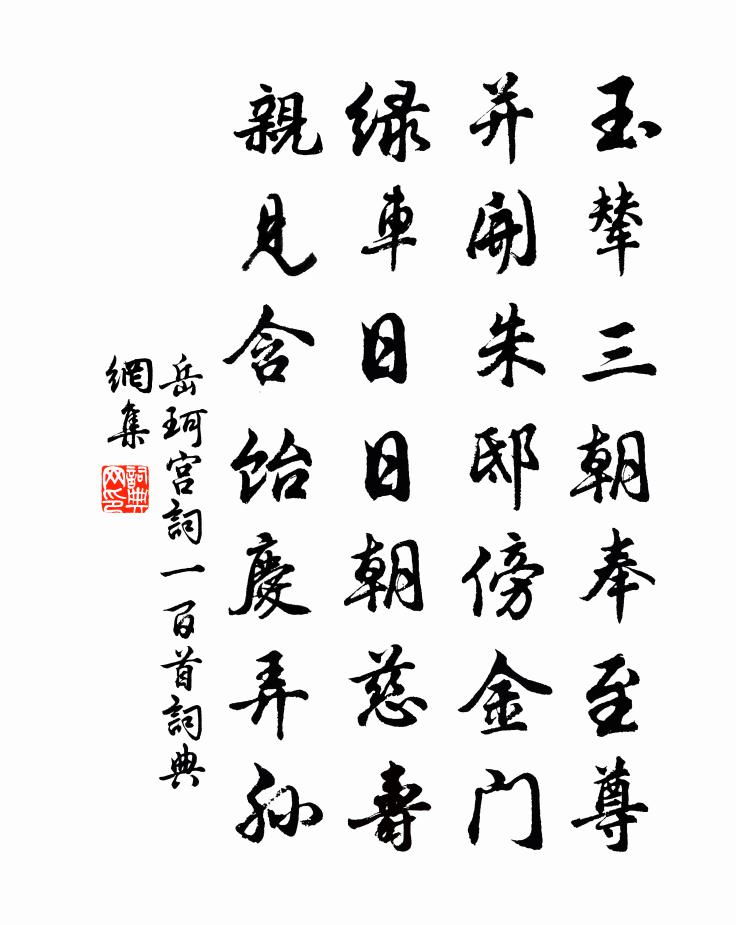 玉輦三朝奉至尊
并開朱邸傍金門
緑車日日朝慈壽
親見含飴慶弄孫
岳珂宮詞一百首詞典
網集
詞典網印